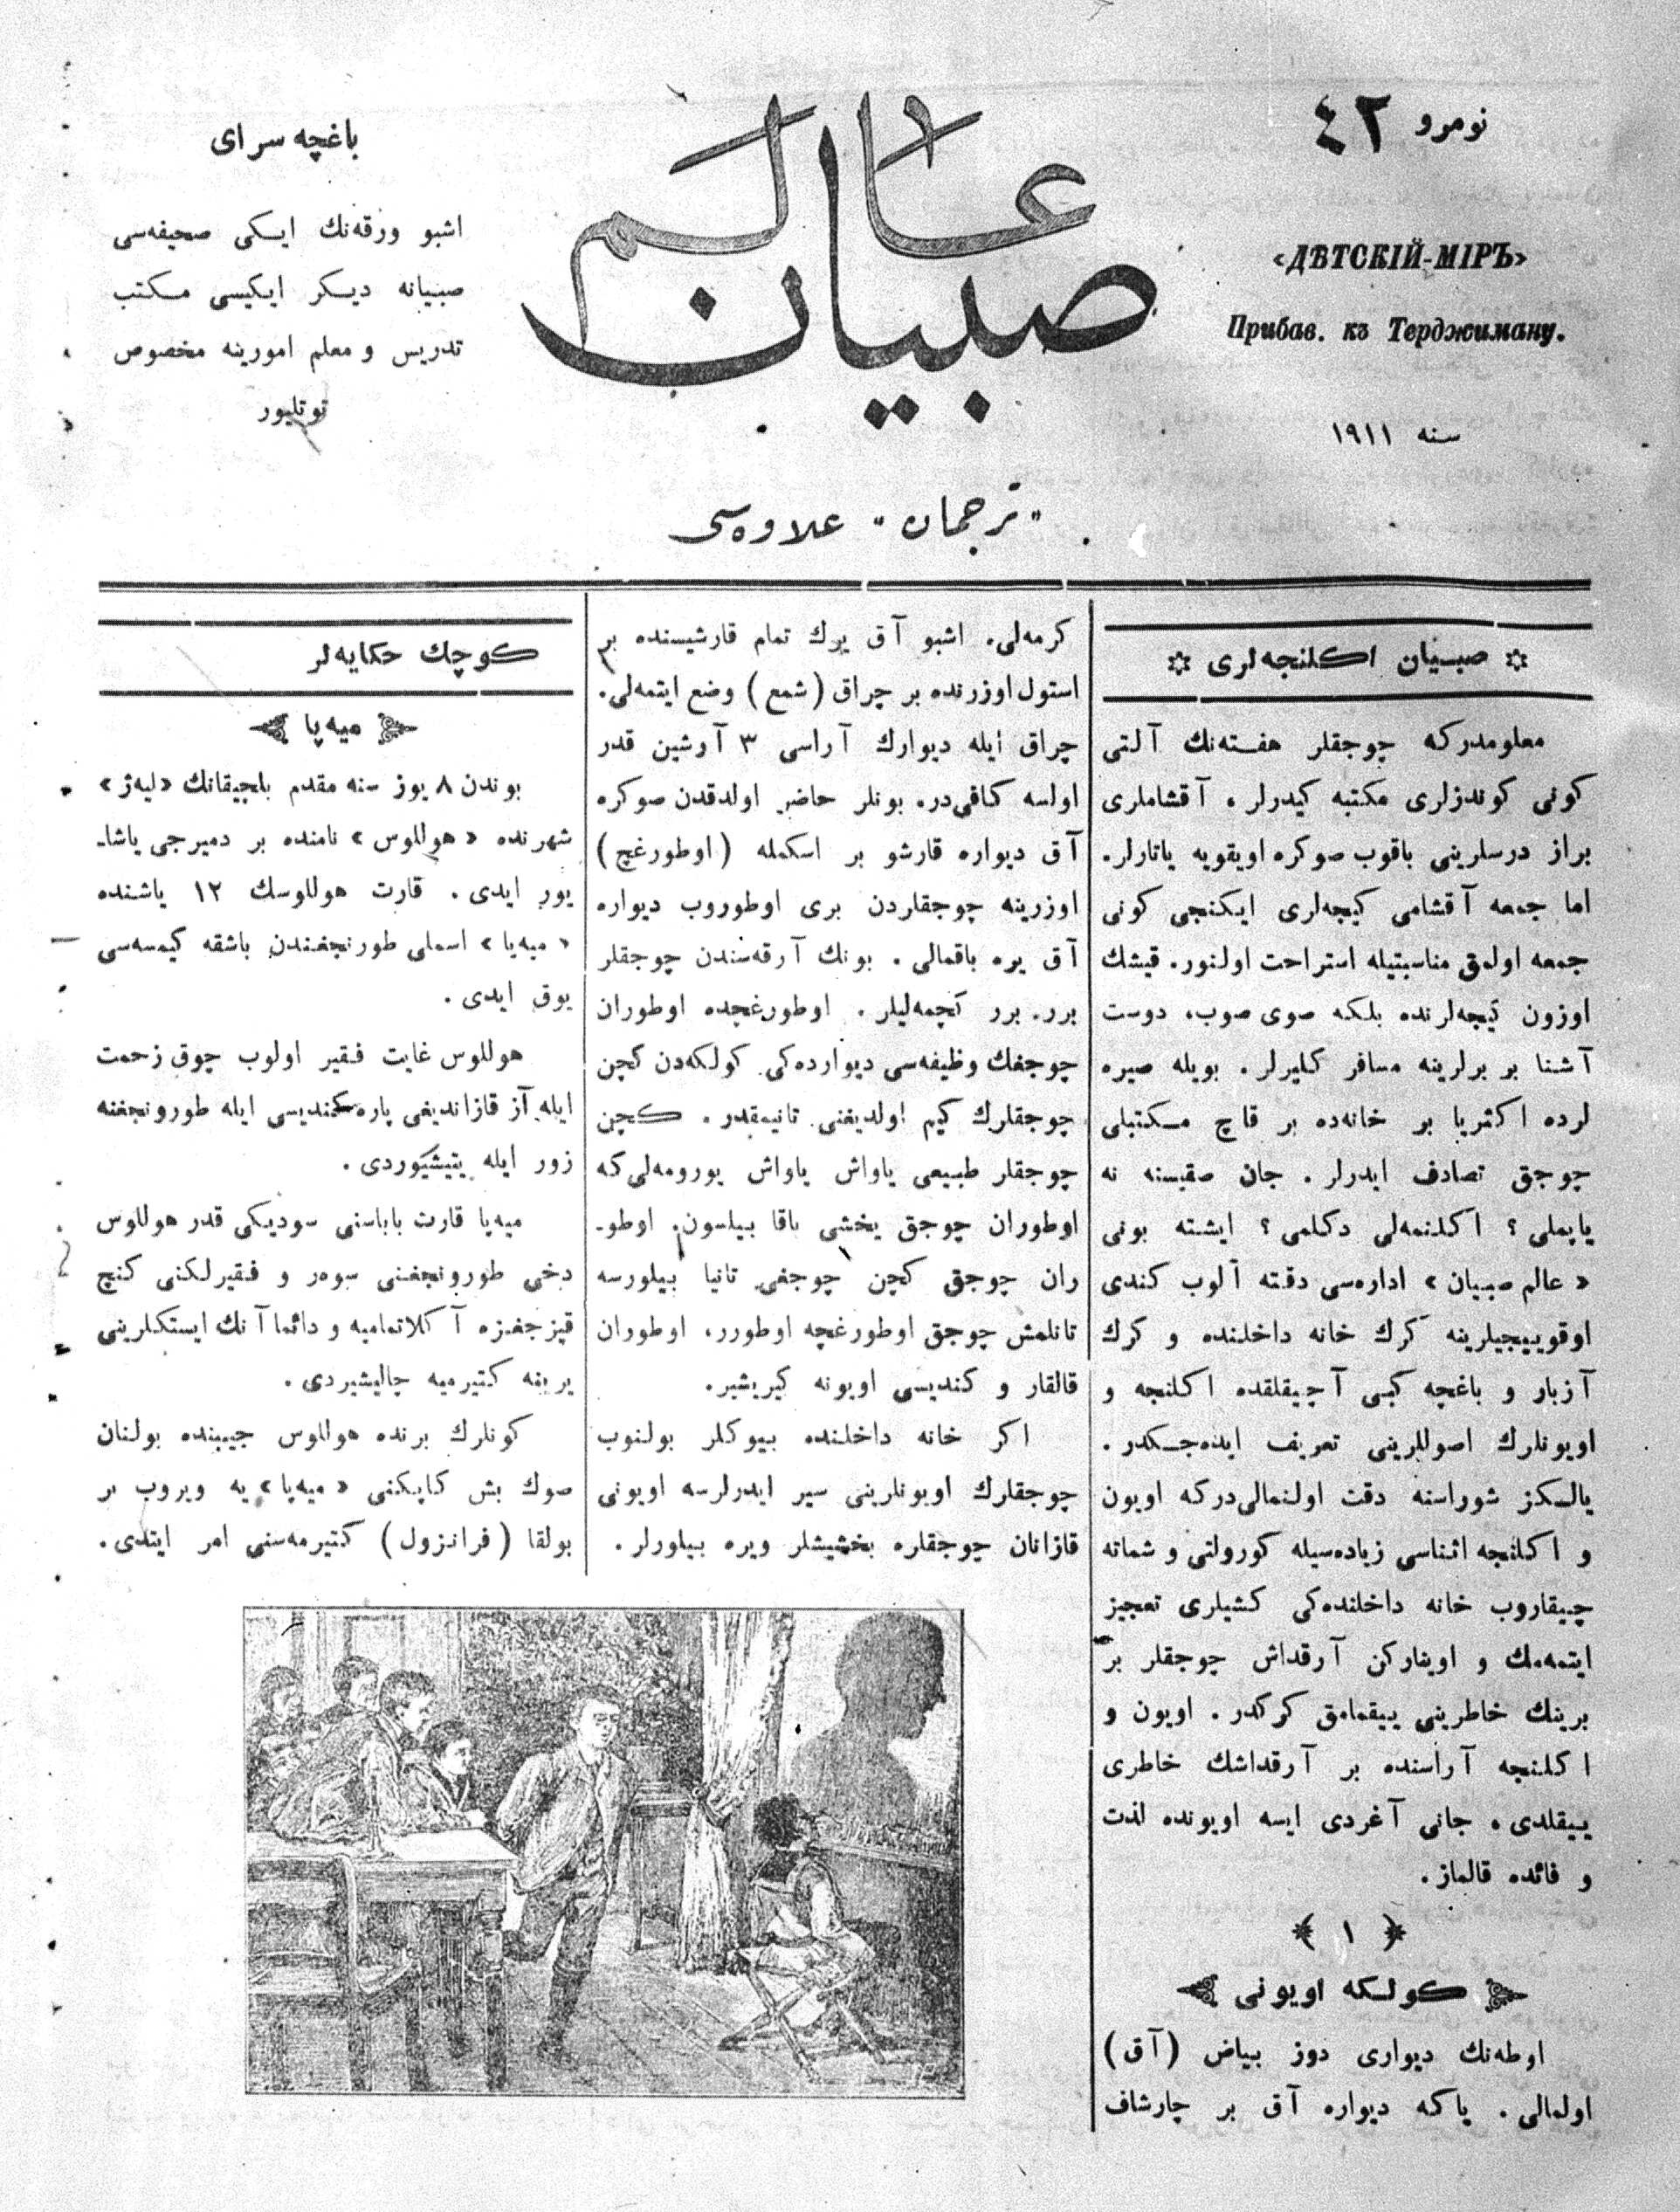 نومرو ٤٢
«ДѢТСКІЙ-МІРЪ»
Прибав. къ Терджиману.
سنه ١٩١١
عالم
صبیان
باغچه سرای
اشبو ورقه‌نك ایکی صحیفه‌سی
صبیانه دیکر ایکیسی مکتب
تدریس و معلم امورینه مخصوص
توتلیور
"ترجمان" علاوه‌سی
صبیان اکلنجه‌لری
معلومدرکه چوجقلر هفته‌نك آلتی
کونی کوندزلری مکتبه کیدرلر، آقشاملری
براز درسلرینی باقوب صوکره اویقویه یاتارلر.
اما جمعه آقشامی کیچه‌لری ایکنجی کونی
جمعه اولمق مناسبتیله استراحت اولنور. قیشك
اوزون کیجه‌لرنده بلکه صوی صوب، دوست
آشنا بر برلرینه مسافر کلیرلر. بویله صیره
لرده اکثریا بر خانه‌ده بر قاچ مکتبلی
چوجق تصادف ایدرلر. جان صقیسنه نه
یاپملی؟ اکلنمه‌لی دکلمی؟ ایشته بونی
«عالم صبیان» اداره‌سی دقته آلوب کندی
اوقوییجیلرینه کرك خانه داخلنده و کرك
آزبار و باغچه کبی آچیقلقده اکلنجه و
اویونلرك اصوللرینی تعریف ایده‌جکدر.
یالکز شوراسنه دقت اولنمالی‌درکه اویون
و اکلنجه اثناسی زیاده‌سیله کورولتی و شماته
چیقاروب خانه داخلنده‌کی کشیلری تعجیز
ایتمه‌مك و اویناركن آرقداش چوجقلر بر
برینك خاطرینی ییقمامق کرکدر. اویون و
اکلنجه آراسنده بر آرقداشك خاطری
ییقلدی، جانی آغردی ایسه اویونده لذت
و فائده قالماز.
﴿ ١ ﴾
کولکه اویونی
اوطه‌نك دیواری دوز بیاض (آق)
اولمالی. یاکه دیواره آق بر چارشاف
کرمه‌لی. اشبو آق یرك تمام قارشیسنده بر
استول اوزرنده بر چراق (شمع) وضع ایتمه‌لی.
چراق ایله دیوارك آراسی ٣ آرشین قدر
اولسه کافی‌در. بونلر حاضر اولدقدن صوکره
آق دیواره قارشو بر اسکمله (اوطورغچ)
اوزرینه چوجقلردن بری اوطوروب دیواره
آق یره باقمالی. بونك آرقه‌سندن چوجقلر
برر. برر کچمه‌لیلر. اوطورغچده اوطوران
چوجغك وظیفه‌سی دیوارده‌کی کولکه‌دن کچن
چوجقلرك کیم اولدیغنی تانیمقدر. کچن
چوجقلر طبیعی یاواش یاواش یورومه‌لی‌که
اوطوران چوجق یخشی باقا بیلسون. اوطو-
ران چوجق کچن چوجغی تانیا بیلورسه
تانلمش چوجق اوطورغچه اوطورر، اوطوران
قالقار و کندیسی اویونه کیریشیر.
اکر خانه داخلنده بیوکلر بولنوب
چوجقلرك اویونلرینی سیر ایدرلرسه اویونی
قازانان چوجقلره بخشیشلر ویره بیلورلر.
کوچك حکایه‌لر
میه‌پا
بوندن ٨ یوز سنه مقدم بلجیقانك «لیه‌ژ»
شهرنده «هوللوس» نامنده بر دمیرجی یاشا-
یور ایدی. قارت هوللوسك ١٢ یاشنده
«میه‌پا» اسملی طورنجغندن باشقه کیمسه‌سی
یوق ایدی.
هوللوس غایت فقیر اولوب چوق زحمت
ایله آز قازاندیغی پاره کندیسی ایله طورونجغنه
زور ایله یتیشیوردی.
میه‌پا قارت باباسنی سودیکی قدر هوللوس
دخی طورونجغنی سوه‌ر و فقیرلکنی کنچ
قیزجغزه آکلاتمامیه و دائما آنك ایستکلرینی
یرینه کتیرمیه چالیشیردی.
کونلرك برنده هوللوس جیبنده بولنان
صوك بش کاپکنی «میه‌پا» یه ویروب بر
بولقا (فرانزول) کتیرمه‌سنی امر ایتدی.